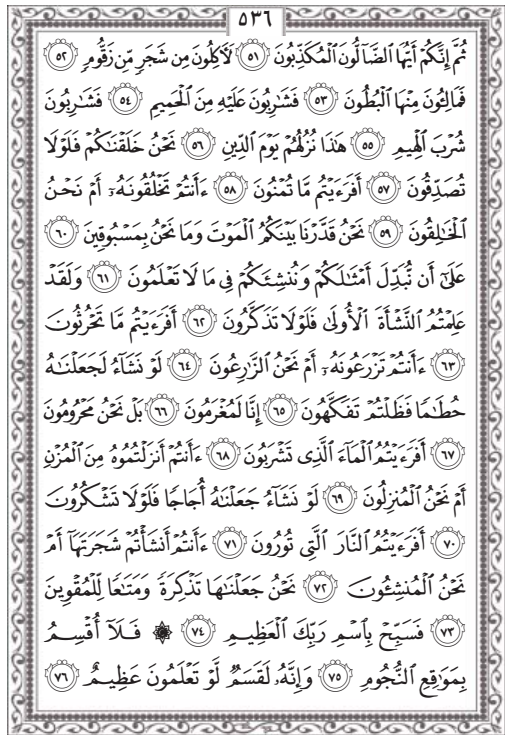 ٥٣٦
ثُمَّ إِنَّكُمْ أَيُّهَا ٱلضَّآلُّونَ ٱلْمُكَذِّبُونَ ٥١ لَأٓكِلُونَ مِن شَجَرٍ مِّن زَقُّومٍ ٥٢
فَمَالِـُٔونَ مِنْهَا ٱلْبُطُونَ ٥٣ فَشَٰرِبُونَ عَلَيْهِ مِنَ ٱلْحَمِيمِ ٥٤ فَشَٰرِبُونَ
شُرْبَ ٱلْهِيمِ ٥٥ هَٰذَا نُزُلُهُمْ يَوْمَ ٱلدِّينِ ٥٦ نَحْنُ خَلَقْنَٰكُمْ فَلَوْلَا
تُصَدِّقُونَ ٥٧ أَفَرَءَيْتُم مَّا تُمْنُونَ ٥٨ ءَأَنتُمْ تَخْلُقُونَهُۥٓ أَمْ نَحْنُ
ٱلْخَٰلِقُونَ ٥٩ نَحْنُ قَدَّرْنَا بَيْنَكُمُ ٱلْمَوْتَ وَمَا نَحْنُ بِمَسْبُوقِينَ ٦٠
عَلَىٰٓ أَن نُّبَدِّلَ أَمْثَٰلَكُمْ وَنُنشِئَكُمْ فِى مَا لَا تَعْلَمُونَ ٦١ وَلَقَدْ
عَلِمْتُمُ ٱلنَّشْأَةَ ٱلْأُولَىٰ فَلَوْلَا تَذَكَّرُونَ ٦٢ أَفَرَءَيْتُم مَّا تَحْرُثُونَ
٦٣ ءَأَنتُمْ تَزْرَعُونَهُۥٓ أَمْ نَحْنُ ٱلزَّٰرِعُونَ ٦٤ لَوْ نَشَآءُ لَجَعَلْنَٰهُ
حُطَٰمًا فَظَلْتُمْ تَفَكَّهُونَ ٦٥ إِنَّا لَمُغْرَمُونَ ٦٦ بَلْ نَحْنُ مَحْرُومُونَ
٦٧ أَفَرَءَيْتُمُ ٱلْمَآءَ ٱلَّذِى تَشْرَبُونَ ٦٨ ءَأَنتُمْ أَنزَلْتُمُوهُ مِنَ ٱلْمُزْنِ
أَمْ نَحْنُ ٱلْمُنزِلُونَ ٦٩ لَوْ نَشَآءُ جَعَلْنَٰهُ أُجَاجًا فَلَوْلَا تَشْكُرُونَ
٧٠ أَفَرَءَيْتُمُ ٱلنَّارَ ٱلَّتِى تُورُونَ ٧١ ءَأَنتُمْ أَنشَأْتُمْ شَجَرَتَهَآ أَمْ
نَحْنُ ٱلْمُنشِـُٔونَ ٧٢ نَحْنُ جَعَلْنَٰهَا تَذْكِرَةً وَمَتَٰعًا لِّلْمُقْوِينَ
٧٣ فَسَبِّحْ بِٱسْمِ رَبِّكَ ٱلْعَظِيمِ ٧٤ ۞ فَلَآ أُقْسِمُ
بِمَوَٰقِعِ ٱلنُّجُومِ ٧٥ وَإِنَّهُۥ لَقَسَمٌ لَّوْ تَعْلَمُونَ عَظِيمٌ ٧٦